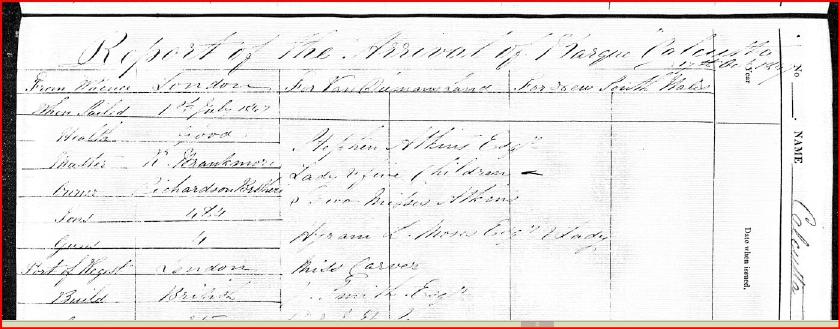 Report of the Arrival of Barque Calcutta
From Whence London For Van Diemans Land For New South Wales
When Sailed 1st July
Health Good
Stephen Atkins Esqr
Master
Lady & five Children &
Owner Richardson Brothers
Two Misses Atkins
Tons
Guns 4
Hyram L. Moses Esqr & Lady
Port of Regist London Miss Carver
Build British Smith Esqr
Year
Date when issued.
No
NAME Calcutta